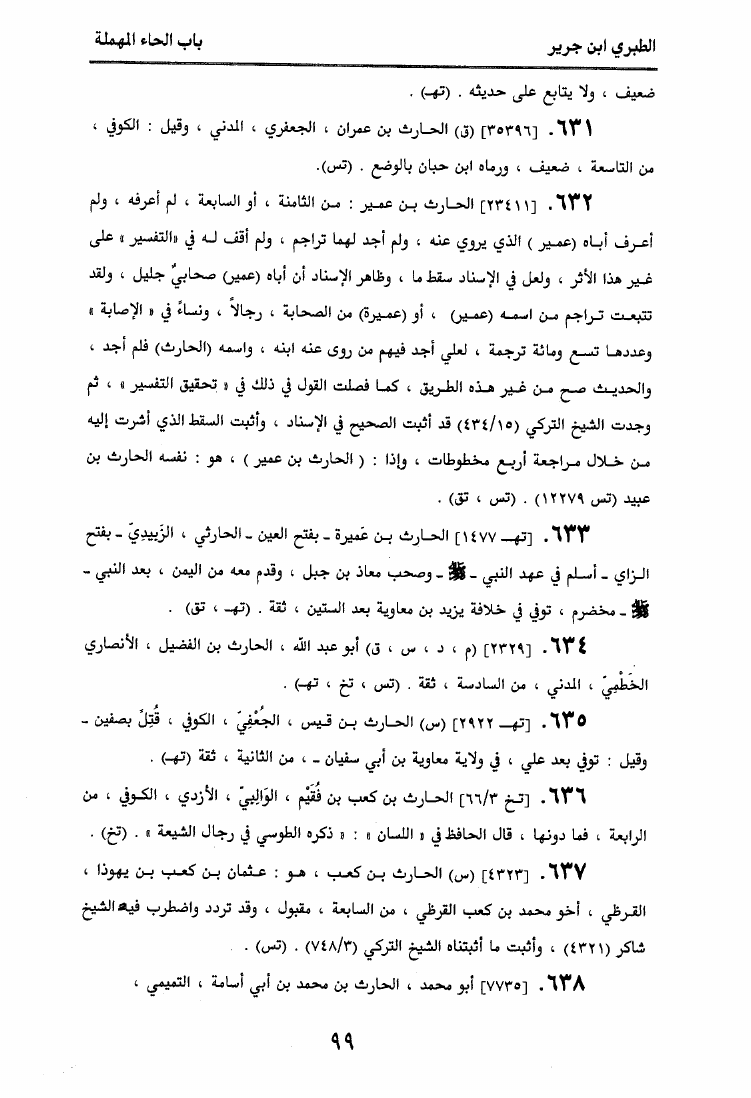 الطبري ابن جرير
باب الحاء المهملة
ضعيف ، ولا يتابع على حديثه . (تهـ) .
٦٣١. [٣٥٣٩٦] (ق) الحارث بن عمران ، الجعفري ، المدني ، وقيل : الكوفي ،
من التاسعة ، ضعيف ، ورماه ابن حبان بالوضع . (تس).
٦٣٢. [٢٣٤١١] الحارث بن عمير : من الثامنة ، أو السابعة ، لم أعرفه ، ولم
أعرف أباه (عمير ) الذي يروي عنه ، ولم أجد لهما تراجم ، ولم أقف له في «التفسير» على
غير هذا الأثر ، ولعل في الإسناد سقط ما ، وظاهر الإسناد أن أباه (عمير) صحابيٌ جليل ، ولقد
تتبعت تراجم من اسمه (عمير) ، أو (عميرة) من الصحابة ، رجالاً ، ونساءً في « الإصابة »
وعددها تسع ومائة ترجمة ، لعلي أجد فيهم من روى عنه ابنه ، واسمه (الحارث) فلم أجد ،
والحديث صح من غير هذه الطريق ، كما فصلت القول في ذلك في « تحقيق التفسير » ، ثم
وجدت الشيخ التركي (٤٣٤/١٥) قد أثبت الصحيح في الإسناد ، وأثبت السقط الذي أشرت إليه
من خلال مراجعة أربع مخطوطات ، وإذا : ( الحارث بن عمير ) ، هو : نفسه الحارث بن
عبيد (تس ١٢٢٧٩) . (تس ، تق) .
٦٣٣. [تهـ ١٤٧٧] الحارث بن عَميرة ـ بفتح العين ـ الحارثي ، الزَبيدِيّ ـ بفتح
الزاي ـ أسلم في عهد النبي ـ ﷺ ـ وصحب معاذ بن جبل ، وقدم معه من اليمن ، بعد النبي ـ
ﷺ ـ مخضرم ، توفي في خلافة يزيد بن معاوية بعد الستين ، ثقة . (تهـ ، تق) .
٦٣٤. [٢٣٢٩] (م ، د ، س ، ق) أبو عبد الله ، الحارث بن الفضيل ، الأنصاري
الخَطْمِيّ ، المدني ، من السادسة ، ثقة . (تس ، تخ ، تهـ) .
٦٣٥. [تهـ ٢٩٢٢] (س) الحارث بن قيس ، الجُعْفِيّ ، الكوفي ، قُتِلَ بصفين ـ
وقيل : توفي بعد علي ، في ولاية معاوية بن أبي سفيان ـ ، من الثانية ، ثقة (تهـ) .
٦٣٦. [تخ ٦٦/٣] الحارث بن كعب بن فُقَيْم ، الوَالِبيّ ، الأزدي ، الكوفي ، من
الرابعة ، فما دونها ، قال الحافظ في « اللسان » : « ذكره الطوسي في رجال الشيعة » . (تخ) .
٦٣٧. [٤٣٢٣] (س) الحارث بن كعب ، هو : عثمان بن كعب بن يهوذا ،
القرظي ، أخو محمد بن كعب القرظي ، من السابعة ، مقبول ، وقد تردد واضطرب فيه الشيخ
شاكر (٤٣٢١) ، وأثبت ما أثبتناه الشيخ التركي (٧٤٨/٣) . (تس) .
٦٣٨. [٧٧٣٥] أبو محمد ، الحارث بن محمد بن أبي أسامة ، التميمي ،
٩٩